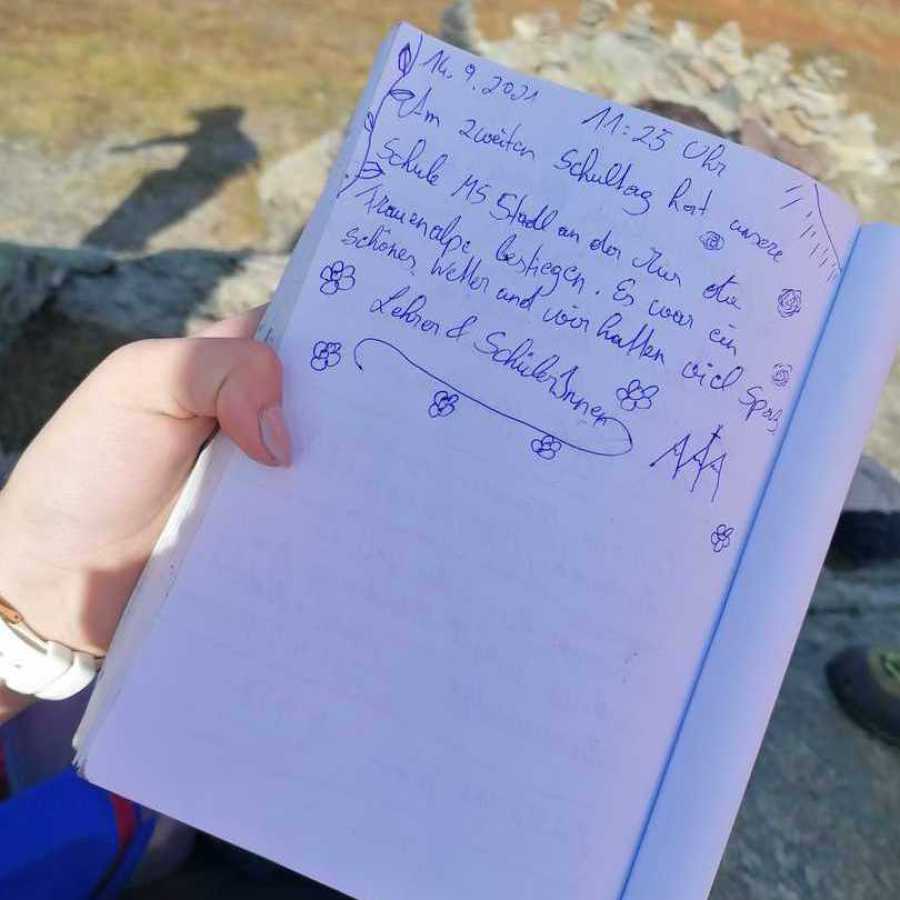 14.9.2021 11:25 Uhr
Am zweiten Schultag hat unsere
Schule MS Stadl an der Mur die
Frauenalpe bestiegen. Es war ein
schönes Wetter und wir hatten viel Spaß
Lehrer & SchülerInnen